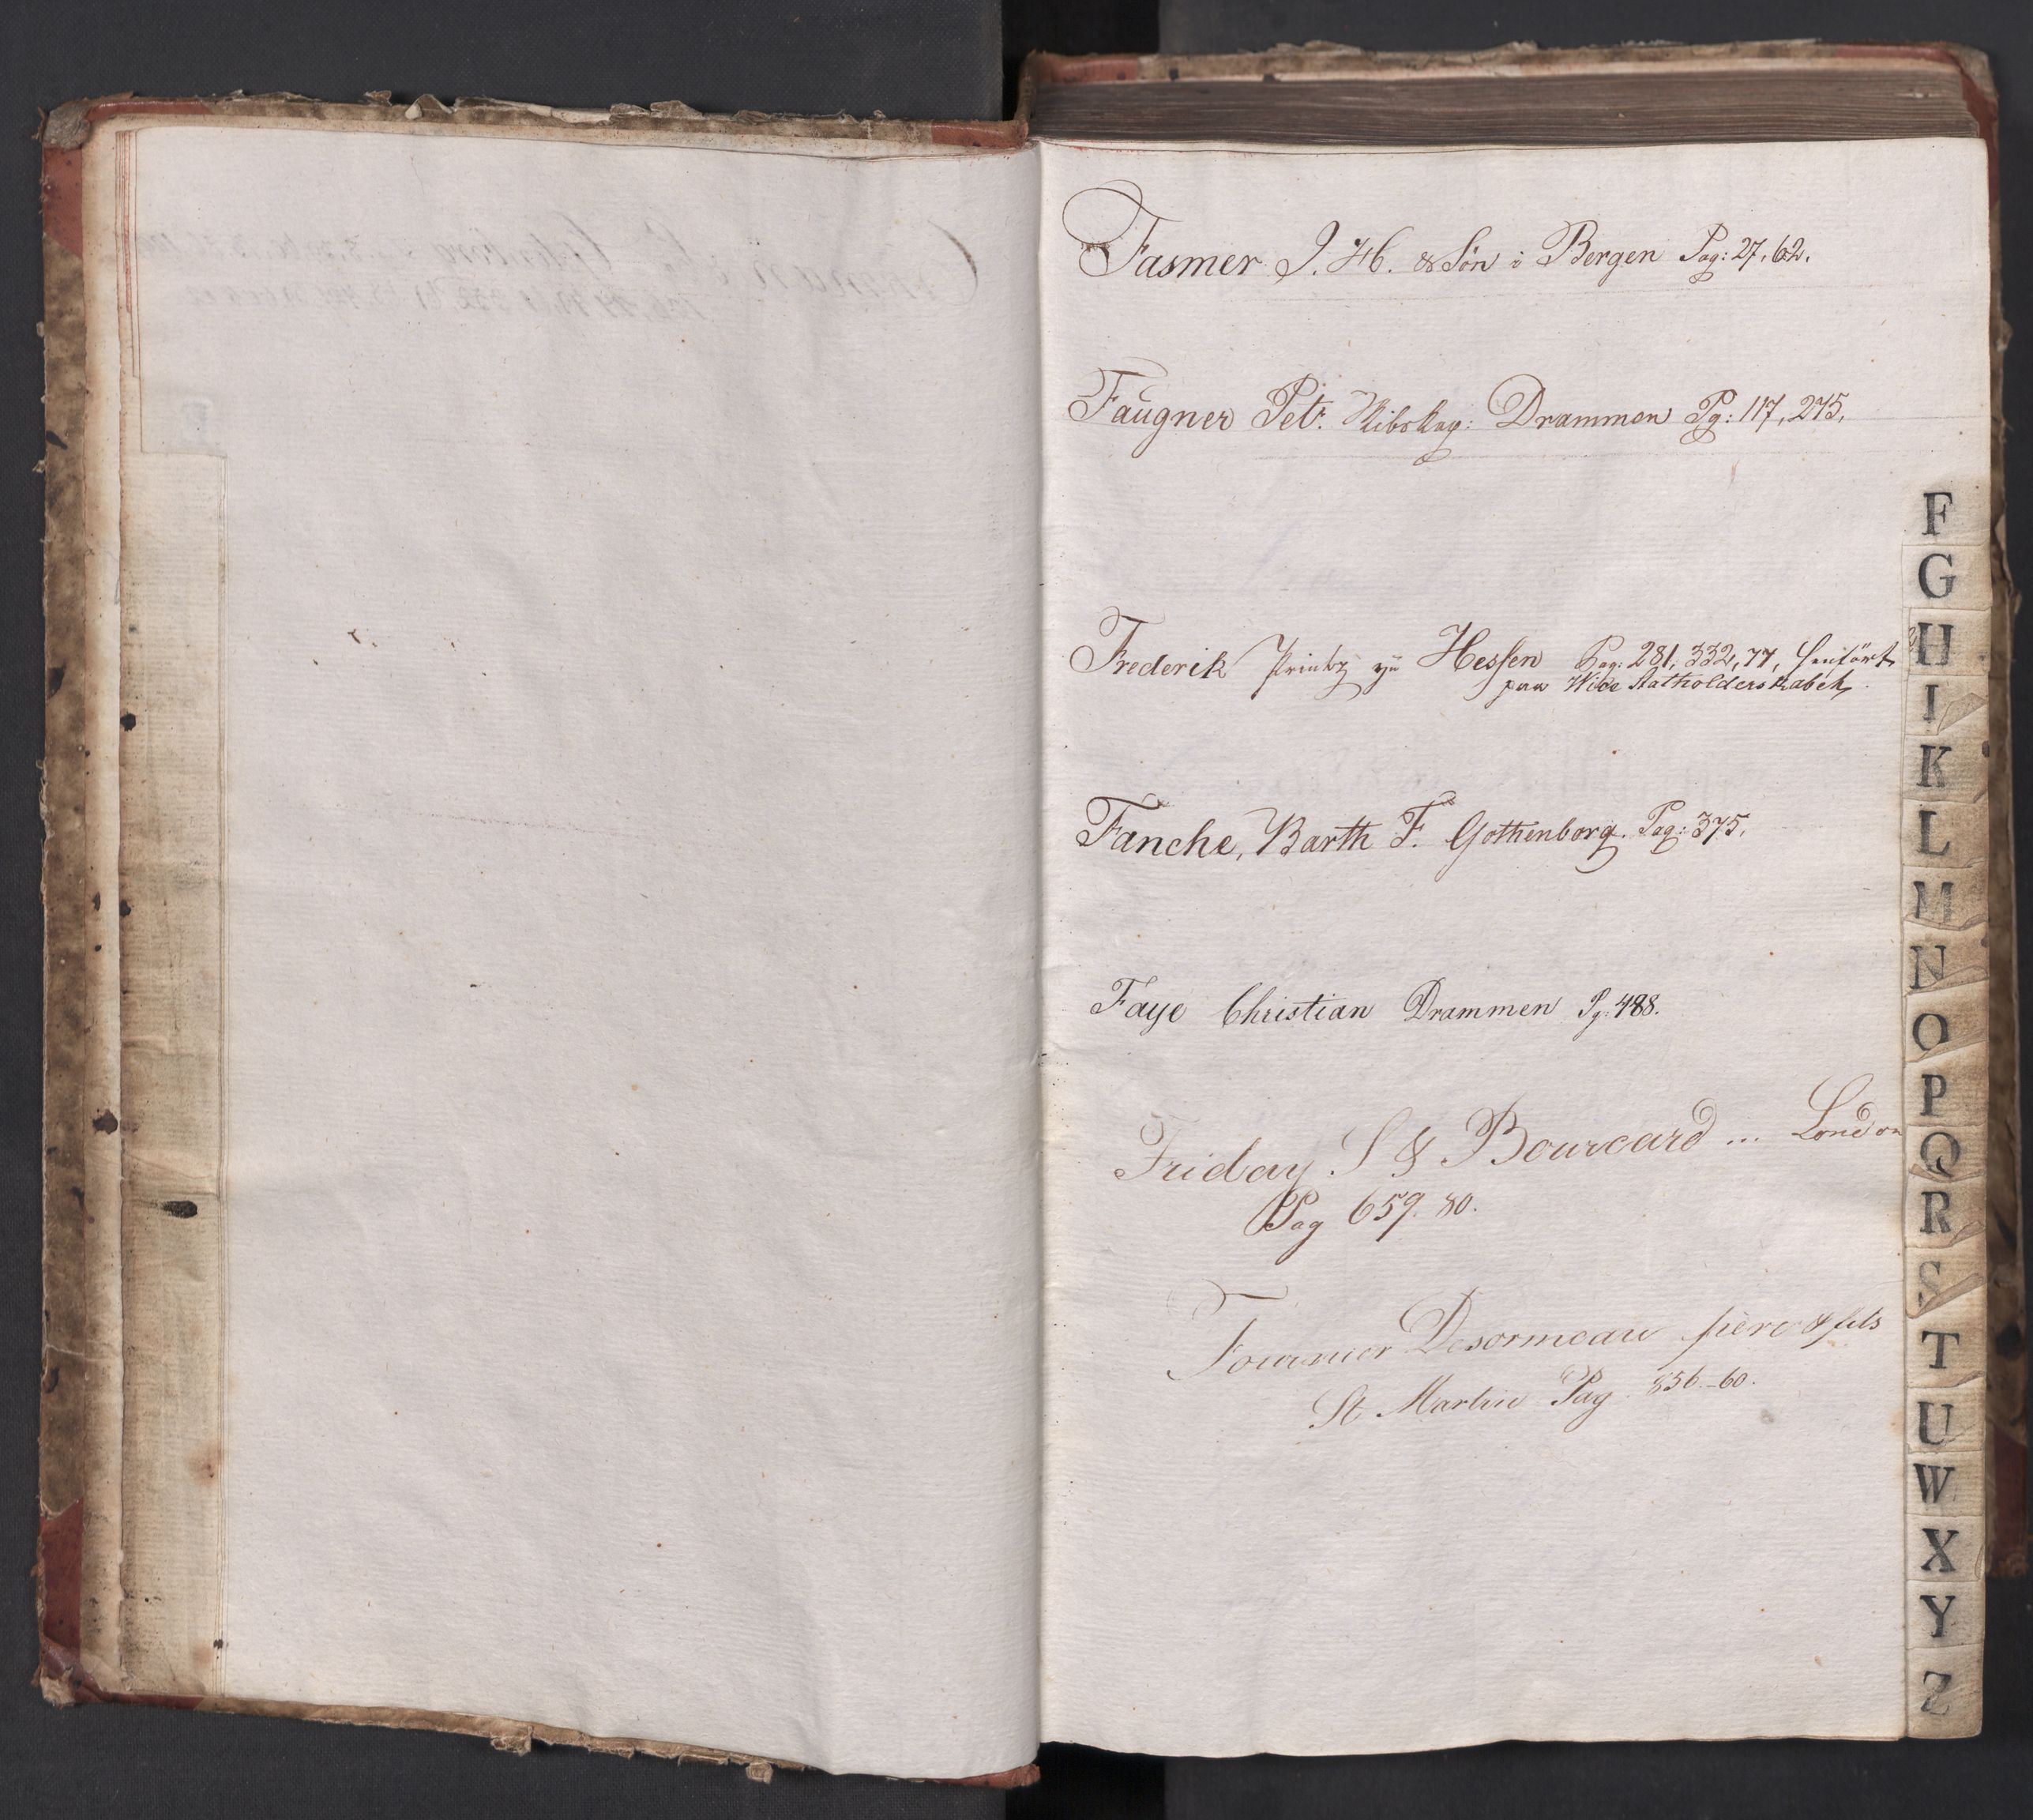 Fasmer J. H. & Søn i Bergen Pag: 27, 62.
Faugner Petr. Skibskap: Drammen Pg: 117, 275.
Frederik Printz zu Hessen Pag: 281, 332, 77, henført
paa Wice Statholderskabet,
Fanche, Barth F. Gothenborg. Pag: 375,
Faye Christian Drammen Pg: 488.
Friday S & Bourcard ... London
Pag 659. 80.
Fournier Desormeau père & fils
St Martin Pag. 856-60.
F
G
H
I
K
L
M
N
O
P
Q
R
S
T
U
W
X
Y
Z